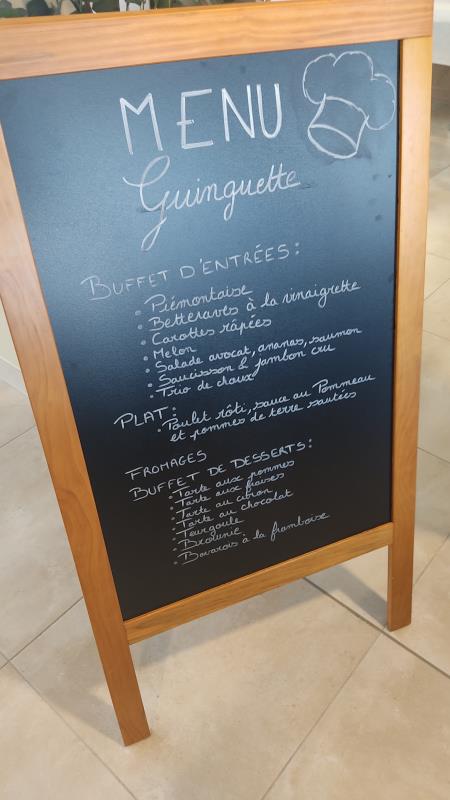 MENU
Guinguette
BUFFET D'ENTRÉES:
• Piémontaise
• Betteraves à la vinaigrette
• Carottes râpées
• Melon
• Salade avocat, ananas, saumon
• Saucisson & jambon cru
• Trio de choux
PLAT:
• Poulet rôti, sauce au Pommeau
et pommes de terre sautées
FROMAGES
BUFFET DE DESSERTS:
• Tarte aux pommes
• Tarte aux fraises
• Tarte au citron
• Tarte au chocolat
• Teurgoule
• Brownie
• Bavarois à la framboise